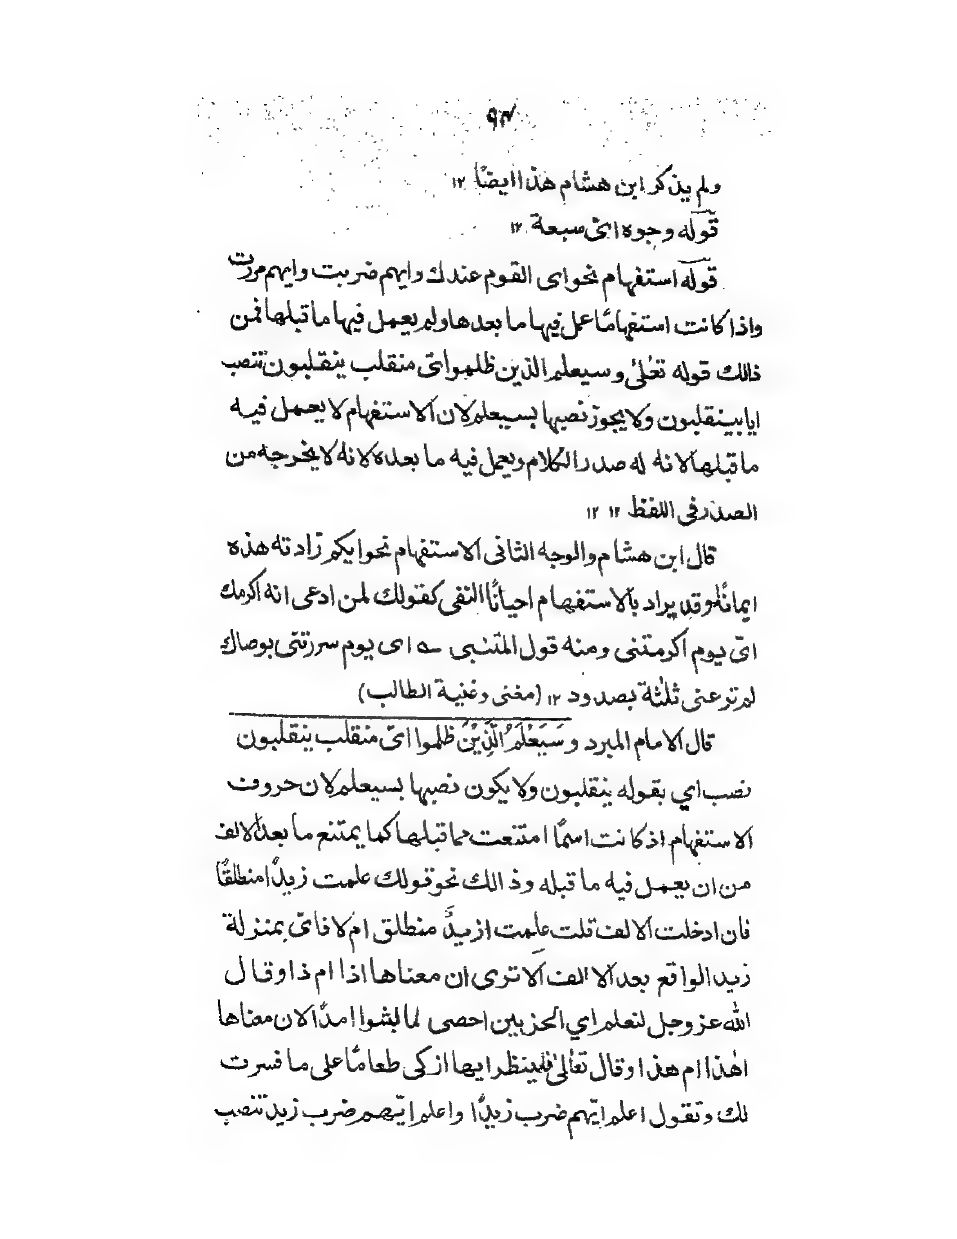 ۹۴
ولم يذكر ابن هشام هذا ايضًا ۱۲
قوله وجوه ایّ سبعة ۱۲
قوله استفهام نحو ای القوم عندك وايهم ضربت وايهم مررت
واذا كانت استفهامًا عمل فيها ما بعدها ولم يعمل فيها ما قبلها فمن
ذالك قوله تعلىٰ وسيعلم الذين ظلموا ایّ منقلب ينقلبون تنصب
ايا بينقلبون ولا يجوز نصبها بسيعلم لان الاستفهام لا يعمل فيه
ما قبلها لانه له صدر الكلام ويعمل فيه ما بعده لانه لا يخرجه من
الصدر فی اللفظ ۱۲ ۱۲
قال ابن هشام والوجه الثانی الاستفهام نحو ايكم زادته هذه
ايمانًا وقد يراد بالاستفهام احيانًا النفی كقولك لمن ادعی انه اكرمك
ایّ يوم اكرمتنی ومنه قول المتنبی ؎ ای يوم سررتنی بوصالك
لم ترعنی ثلثة بصدود ۱۲ (مغنی وغنية الطالب)
قال الامام المبرد وَسَيَعْلَمُ الَّذِيْنَ ظلموا ایّ منقلب ينقلبون
نصب اي بقوله ينقلبون ولا يكون نصبها بسيعلم لان حروف
الاستفهام اذ كانت اسمًا امتنعت مما قبلها كما يمتنع ما بعد الالف
من ان يعمل فيه ما قبله وذالك نحو قولك علمت زيدًا منطلقًا
فان ادخلت الالف قلت علمت ازيدٌ منطلق ام لا فایّ بمنزلة
زيد الواقع بعد الالف الا تری ان معناها اذا ام ذا وقال
الله عز وجل لنعلم اي الحزبين احصی لما لبثوا امدًا لان معناها
اهٰذا ام هذا وقال تعالیٰ فلينظر ايها ازكی طعامًا علی ما فسرت
لك وتقول اعلم ايّهم ضرب زيدًا واعلم ايّهم ضرب زيد تنصب